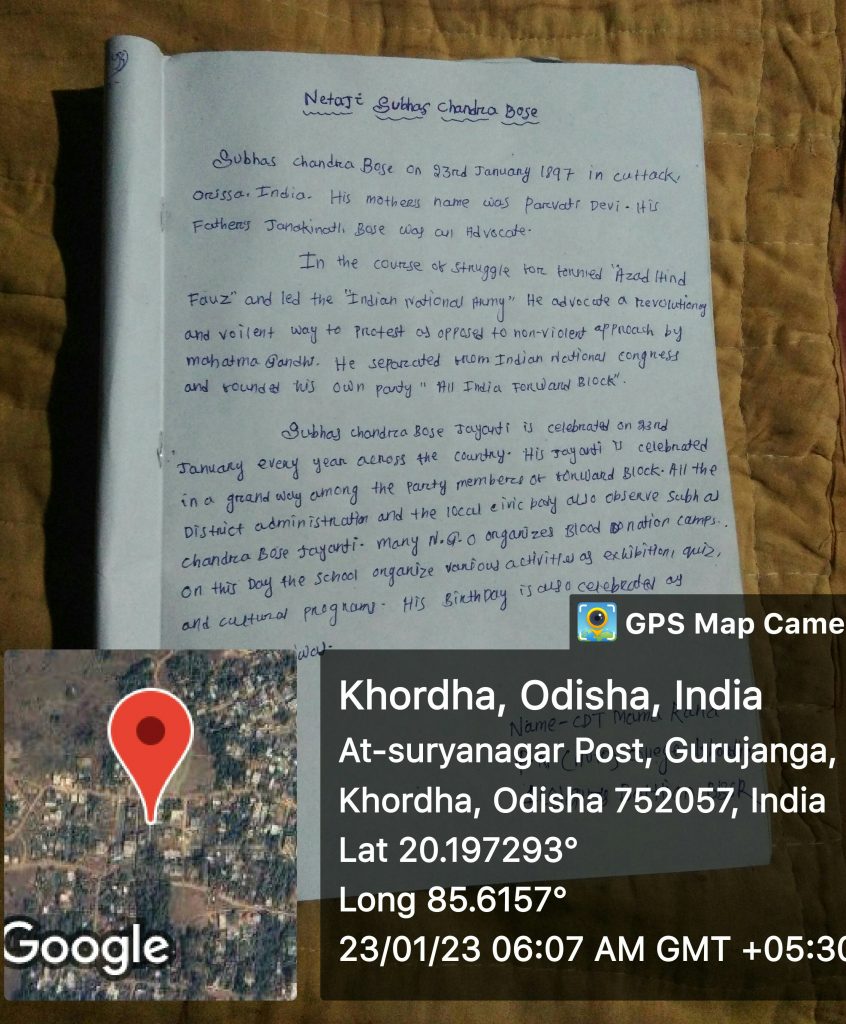 Netaji Subhas Chandra Bose
Subhas chandra Bose on 23rd January 1897 in cuttack,
Orissa, India. His mothers name was Parvati Devi. His
Fathers Janakinath Bose was an Advocate.
In the course of struggle for formed "Azad Hind
Fauz" and led the "Indian National Army" He advocate a revolutionary
and voilent way to protest as opposed to non-violent approach by
mahatma Gandhi. He separated from Indian National congress
and founded his own party "All India Forward Block".
Subhas chandra Bose Jayanti is celebrated on 23rd
January every year across the country. His Jayanti is celebrated
in a grand way among the party members of forward Block. All the
District administration and the local civic body also observe Subhas
chandra Bose Jayanti. many N.G.O organizes Blood Donation camps.
on this Day the school organize various activities as exhibition, quiz,
and cultural programs. His BirthDay is also celebrated as
way.
Name - CDT Mama Rana
GPS Map Came
Khordha, Odisha, India
At-suryanagar Post, Gurujanga,
Khordha, Odisha 752057, India
Lat 20.197293°
Long 85.6157°
23/01/23 06:07 AM GMT +05:30
Google